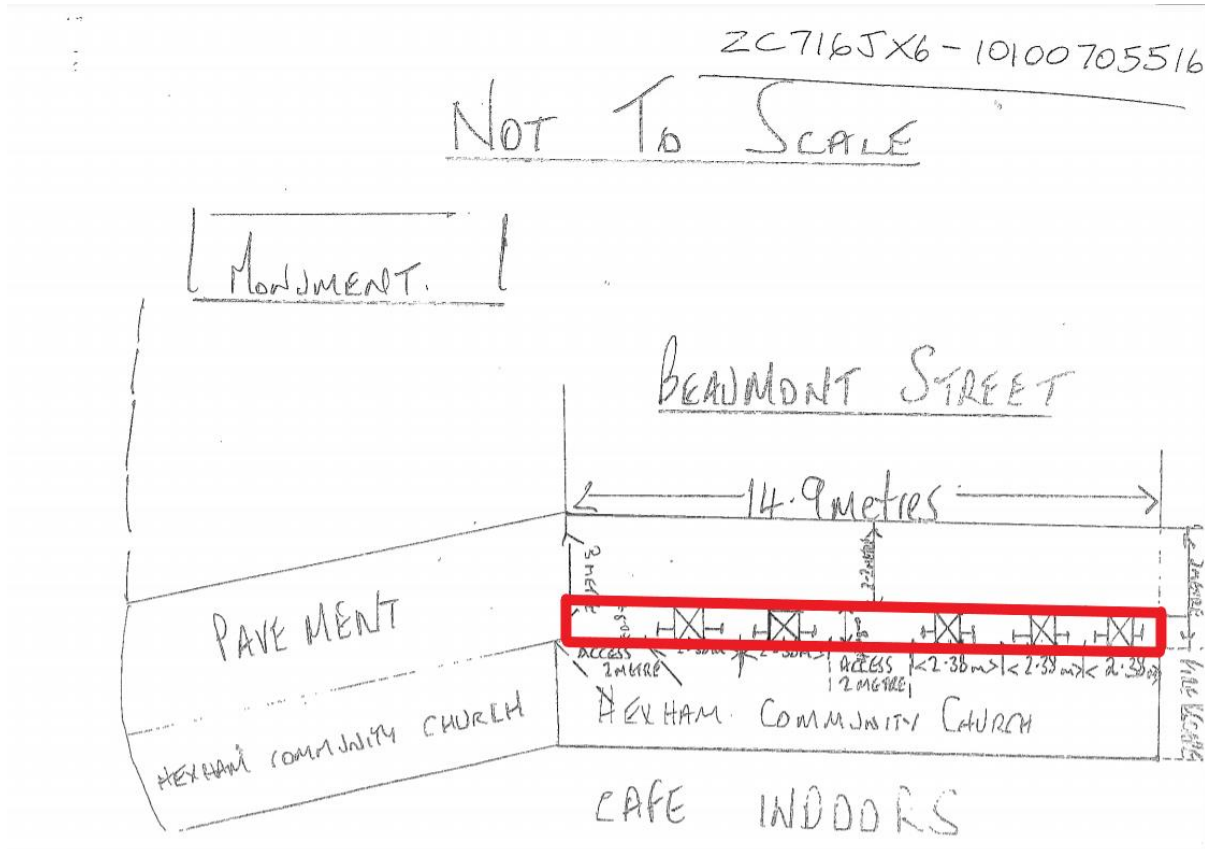 ZC716JX6-10100705516
NOT TO SCALE
MONUMENT.
BEAUMONT STREET
14.9 metres
3 METRE
2.2 METRE
2 METRE
PAVEMENT
ACCESS
2 METRE
2.38m
<2.38m>
ACCESS
2 METRE
<2.38m>
<2.38m>
<2.38m>
HEXHAM COMMUNITY CHURCH
HEXHAM COMMUNITY CHURCH
CAFE INDOORS